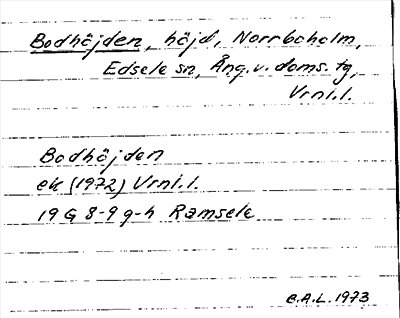 Bodhöjden, höjd, Norrboholm,
Edsele sn, Ång.v. doms. tg,
Vrnl.l.
Bodhöjden
ek (1972) Vrnl.l.
19 G 8-9 g-h Ramsele
C.A.L. 1973